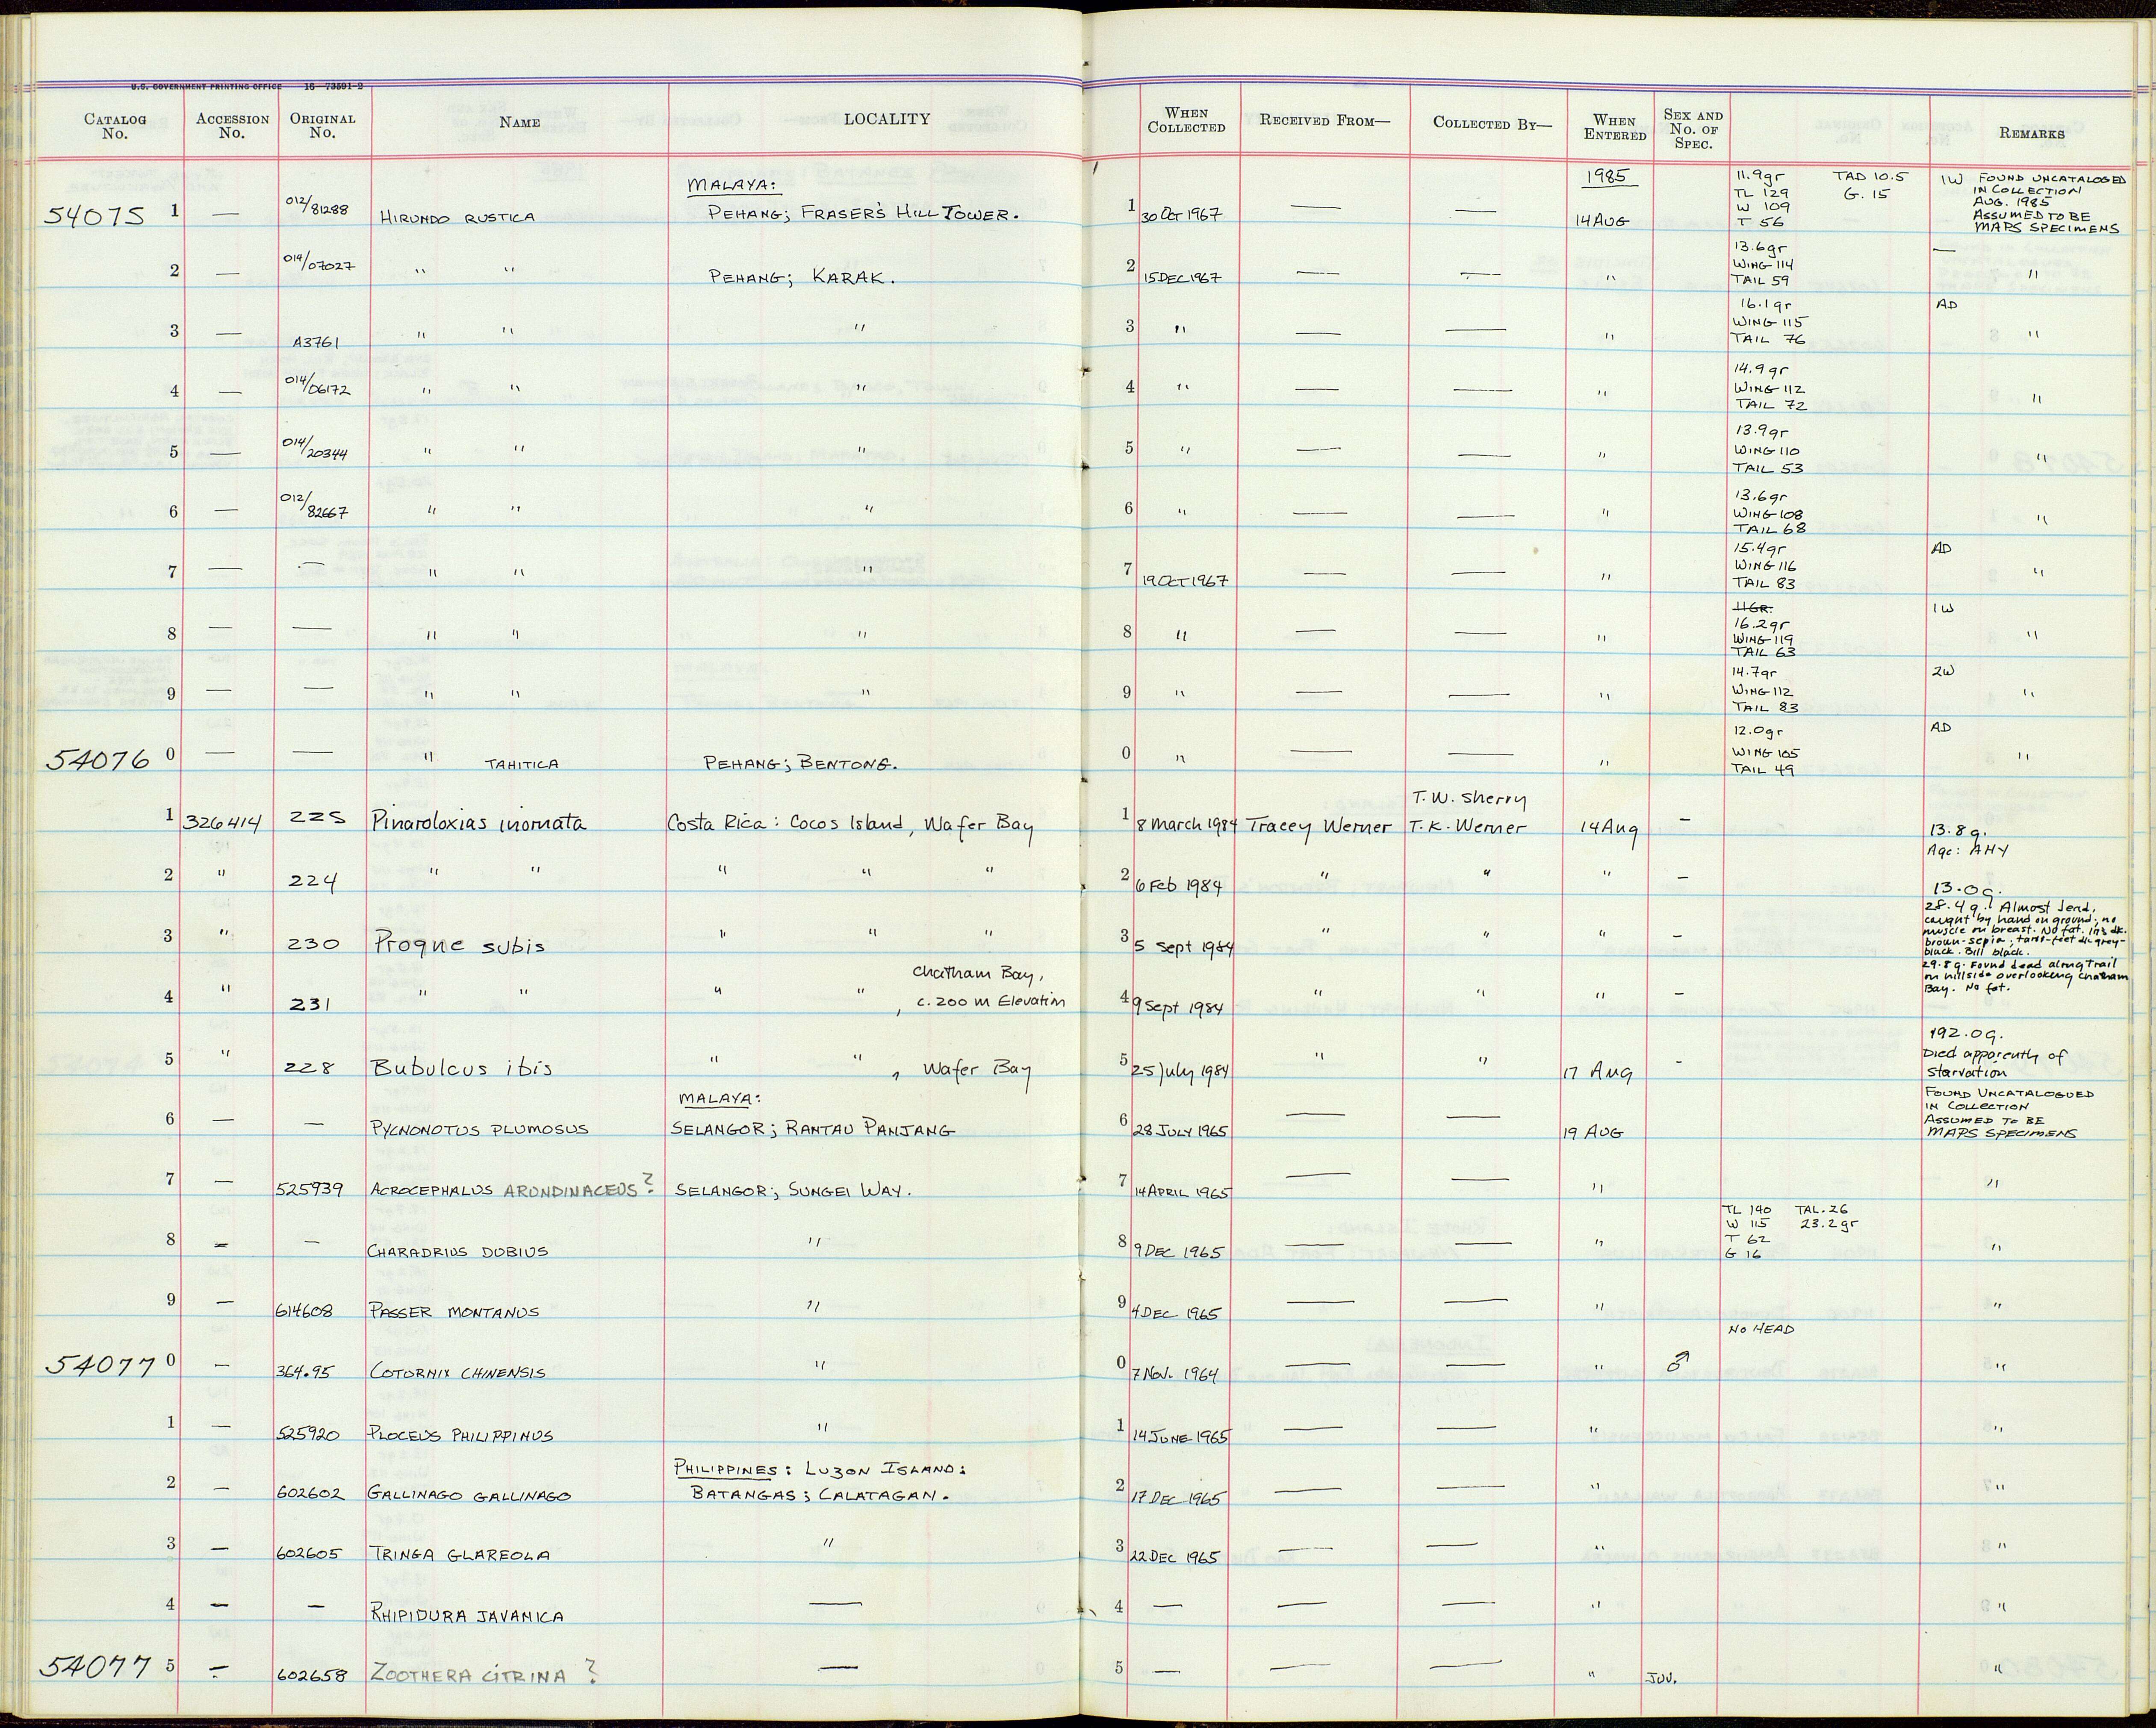 U.S. GOVERNMENT PRINTING OFFICE 16—73591-2
CATALOG No. ACCESSION No. ORIGINAL No. NAME LOCALITY WHEN COLLECTED RECEIVED FROM— COLLECTED BY— WHEN ENTERED SEX AND No. OF SPEC. REMARKS
MALAYA: 1985
54075 1 — 012/81288 HIRUNDO RUSTICA PEHANG; FRASER'S HILL TOWER. 1 30 OCT 1967 — — 14 AUG
11.9gr TAD 10.5
TL 129 G. 15
W 109
T 56
1W FOUND UNCATALOGED
IN COLLECTION
AUG. 1985
ASSUMED TO BE
MAPS SPECIMENS
2 — 014/07027 " " PEHANG; KARAK. 2 15 DEC 1967 — — "
13.6gr
WING 114
TAIL 59
— "
3 — A3761 " " " 3 " — — "
16.1gr
WING 115
TAIL 76
AD "
4 — 014/06172 " " " 4 " — — "
14.9gr
WING 112
TAIL 72
"
5 — 014/20344 " " " 5 " — — "
13.9gr
WING 110
TAIL 53
"
6 — 012/82667 " " " 6 " — — "
13.6gr
WING 108
TAIL 68
"
7 — — " " " 7 19 OCT 1967 — — "
15.4gr
WING 116
TAIL 83
AD "
8 — — " " " 8 " — — "
11GR.
16.2gr
WING 119
TAIL 63
1W "
9 — — " " " 9 " — — "
14.7gr
WING 112
TAIL 83
2W "
54076 0 — — " TAHITICA PEHANG; BENTONG. 0 " — — "
12.0gr
WING 105
TAIL 49
AD "
T.W. Sherry
1 326414 225 Pinaroloxias inornata Costa Rica: Cocos Island, Wafer Bay 1 8 March 1984 Tracey Werner T.K. Werner 14 Aug –
13.8g.
Age: AHY
2 " 224 " " " " " 2 6 Feb 1984 " " " –
13.0g.
3 " 230 Progne subis " " " 3 5 Sept 1984 " " " –
28.4g. Almost dead,
caught by hand on ground; no
muscle on breast. No fat. Iris dk.
brown-sepia; tarsi-feet dk grey-
black. Bill black.
Chatham Bay,
4 " 231 " " " " , c. 200 m Elevation 4 9 Sept 1984 " " " –
29.8g. Found dead along trail
on hillside overlooking Chatham
Bay. No fat.
5 " 228 Bubulcus ibis " " , Wafer Bay 5 25 July 1984 " " 17 Aug -
192.0g.
Died apparently of
starvation
MALAYA:
6 — — PYCNONOTUS PLUMOSUS SELANGOR; RANTAU PANJANG 6 28 JULY 1965 — — 19 AUG
FOUND UNCATALOGUED
IN COLLECTION
ASSUMED TO BE
MAPS SPECIMENS
7 — 525939 ACROCEPHALUS ARUNDINACEUS? SELANGOR; SUNGEI WAY. 7 14 APRIL 1965 — — " "
8 — — CHARADRIUS DUBIUS " 8 9 DEC 1965 — — "
TL 140 TAL. 26
W 115 23.2gr
T 62
G 16
"
9 — 614608 PASSER MONTANUS " 9 4 DEC 1965 — — " "
NO HEAD
54077 0 — 364.95 COTORNIX CHINENSIS " 0 7 NOV. 1964 — — " ♂ "
1 — 525920 PLOCEUS PHILIPPINUS " 1 14 JUNE 1965 — — " "
PHILIPPINES: LUZON ISLAND:
2 — 602602 GALLINAGO GALLINAGO BATANGAS; CALATAGAN. 2 17 DEC 1965 — — " "
3 — 602605 TRINGA GLAREOLA " 3 22 DEC 1965 — — " "
4 — — RHIPIDURA JAVANICA — 4 — — — " "
54077 5 — 602658 ZOOTHERA CITRINA ? — 5 — — — " JUV. "